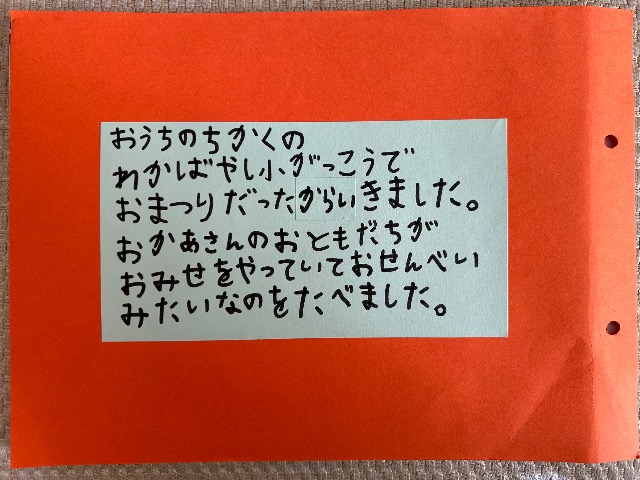 おうちのちかくの
わかばやし小がっこうで
おまつりだったからいきました。
おかあさんのおともだちが
おみせをやっていておせんべい
みたいなのをたべました。